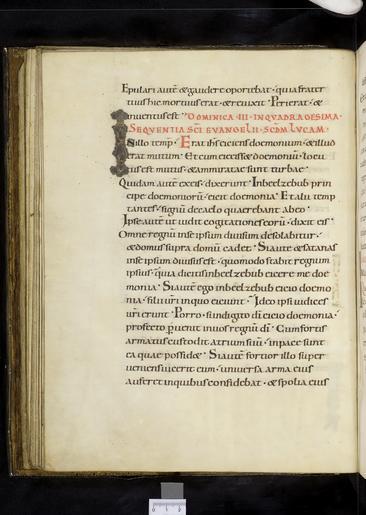 Epulari aute͂ & gaudere oportebat · quia frater
tuus hic mortuus erat · & reuixit · Perierat · &
inuentus est · DOMINICA · III · IN QUADRAGESIMA ·
SEQUENTIA SC̄I EVANGELII · SCDM̄ LUCAM ·
IN illo temp̄ · Erat ihs̄ eiciens doemonium · & illud
erat mutum · Et cum eiecisset doemoniū · locu
tus est mutus · & ammiratae sunt turbae ·
Quidam autē ex eis · dixerunt · In beelzebub prin
cipe doemoniorū · eicit doemonia · Et alii temp
tantes · signū de caelo quaerebant ab eo ·
Ipse autē ut uidit cogitationes eorū · dixit eis ·
Omne regnū in se ipsum diuisum desolabitur ·
& domus supra domū cadet · Si autē & satanas
in se ipsum diuisus est · quomodo stabit regnum
ipsius · quia dicitis in beelzebub eicere me doe
monia · Si autē ego in beelzebub eicio doemo
nia · filii uri̅ in quo eiciunt · Ideo ipsi iudices
uri̅ erunt · Porro · si in digito dī eicio doemonia ·
profecto puenit in uos regnū dī · Cum fortis
armatus custodit atrium suū · in pace sunt
ea quae possid& · Si autē fortior illo super
ueniens uicerit eum · uniuersa arma eius
auferet in quibus confidebat · & spolia eius